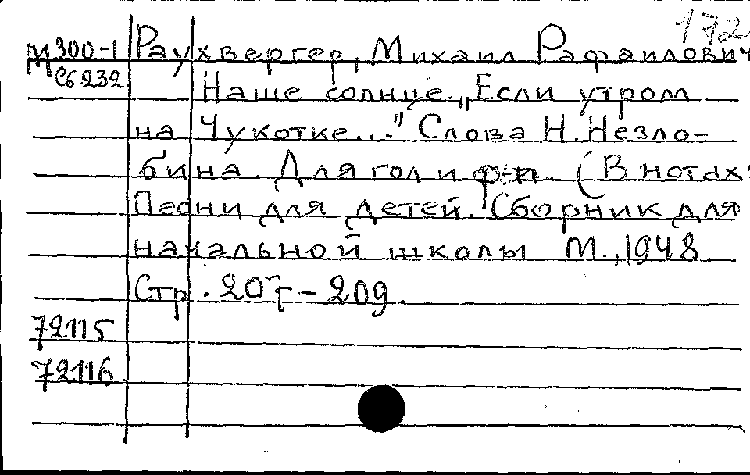 172
М300-1 Раухвергер, Михаил Рафаилович
С6232 Наше солнце. „Если утром
на Чукотке..." Слова Н. Незло-
бина. Для гол и ф-п. (В нотах:
Песни для детей. Сборник для
начальной школы М., 1948
Стр. 207-209.
72115
72116